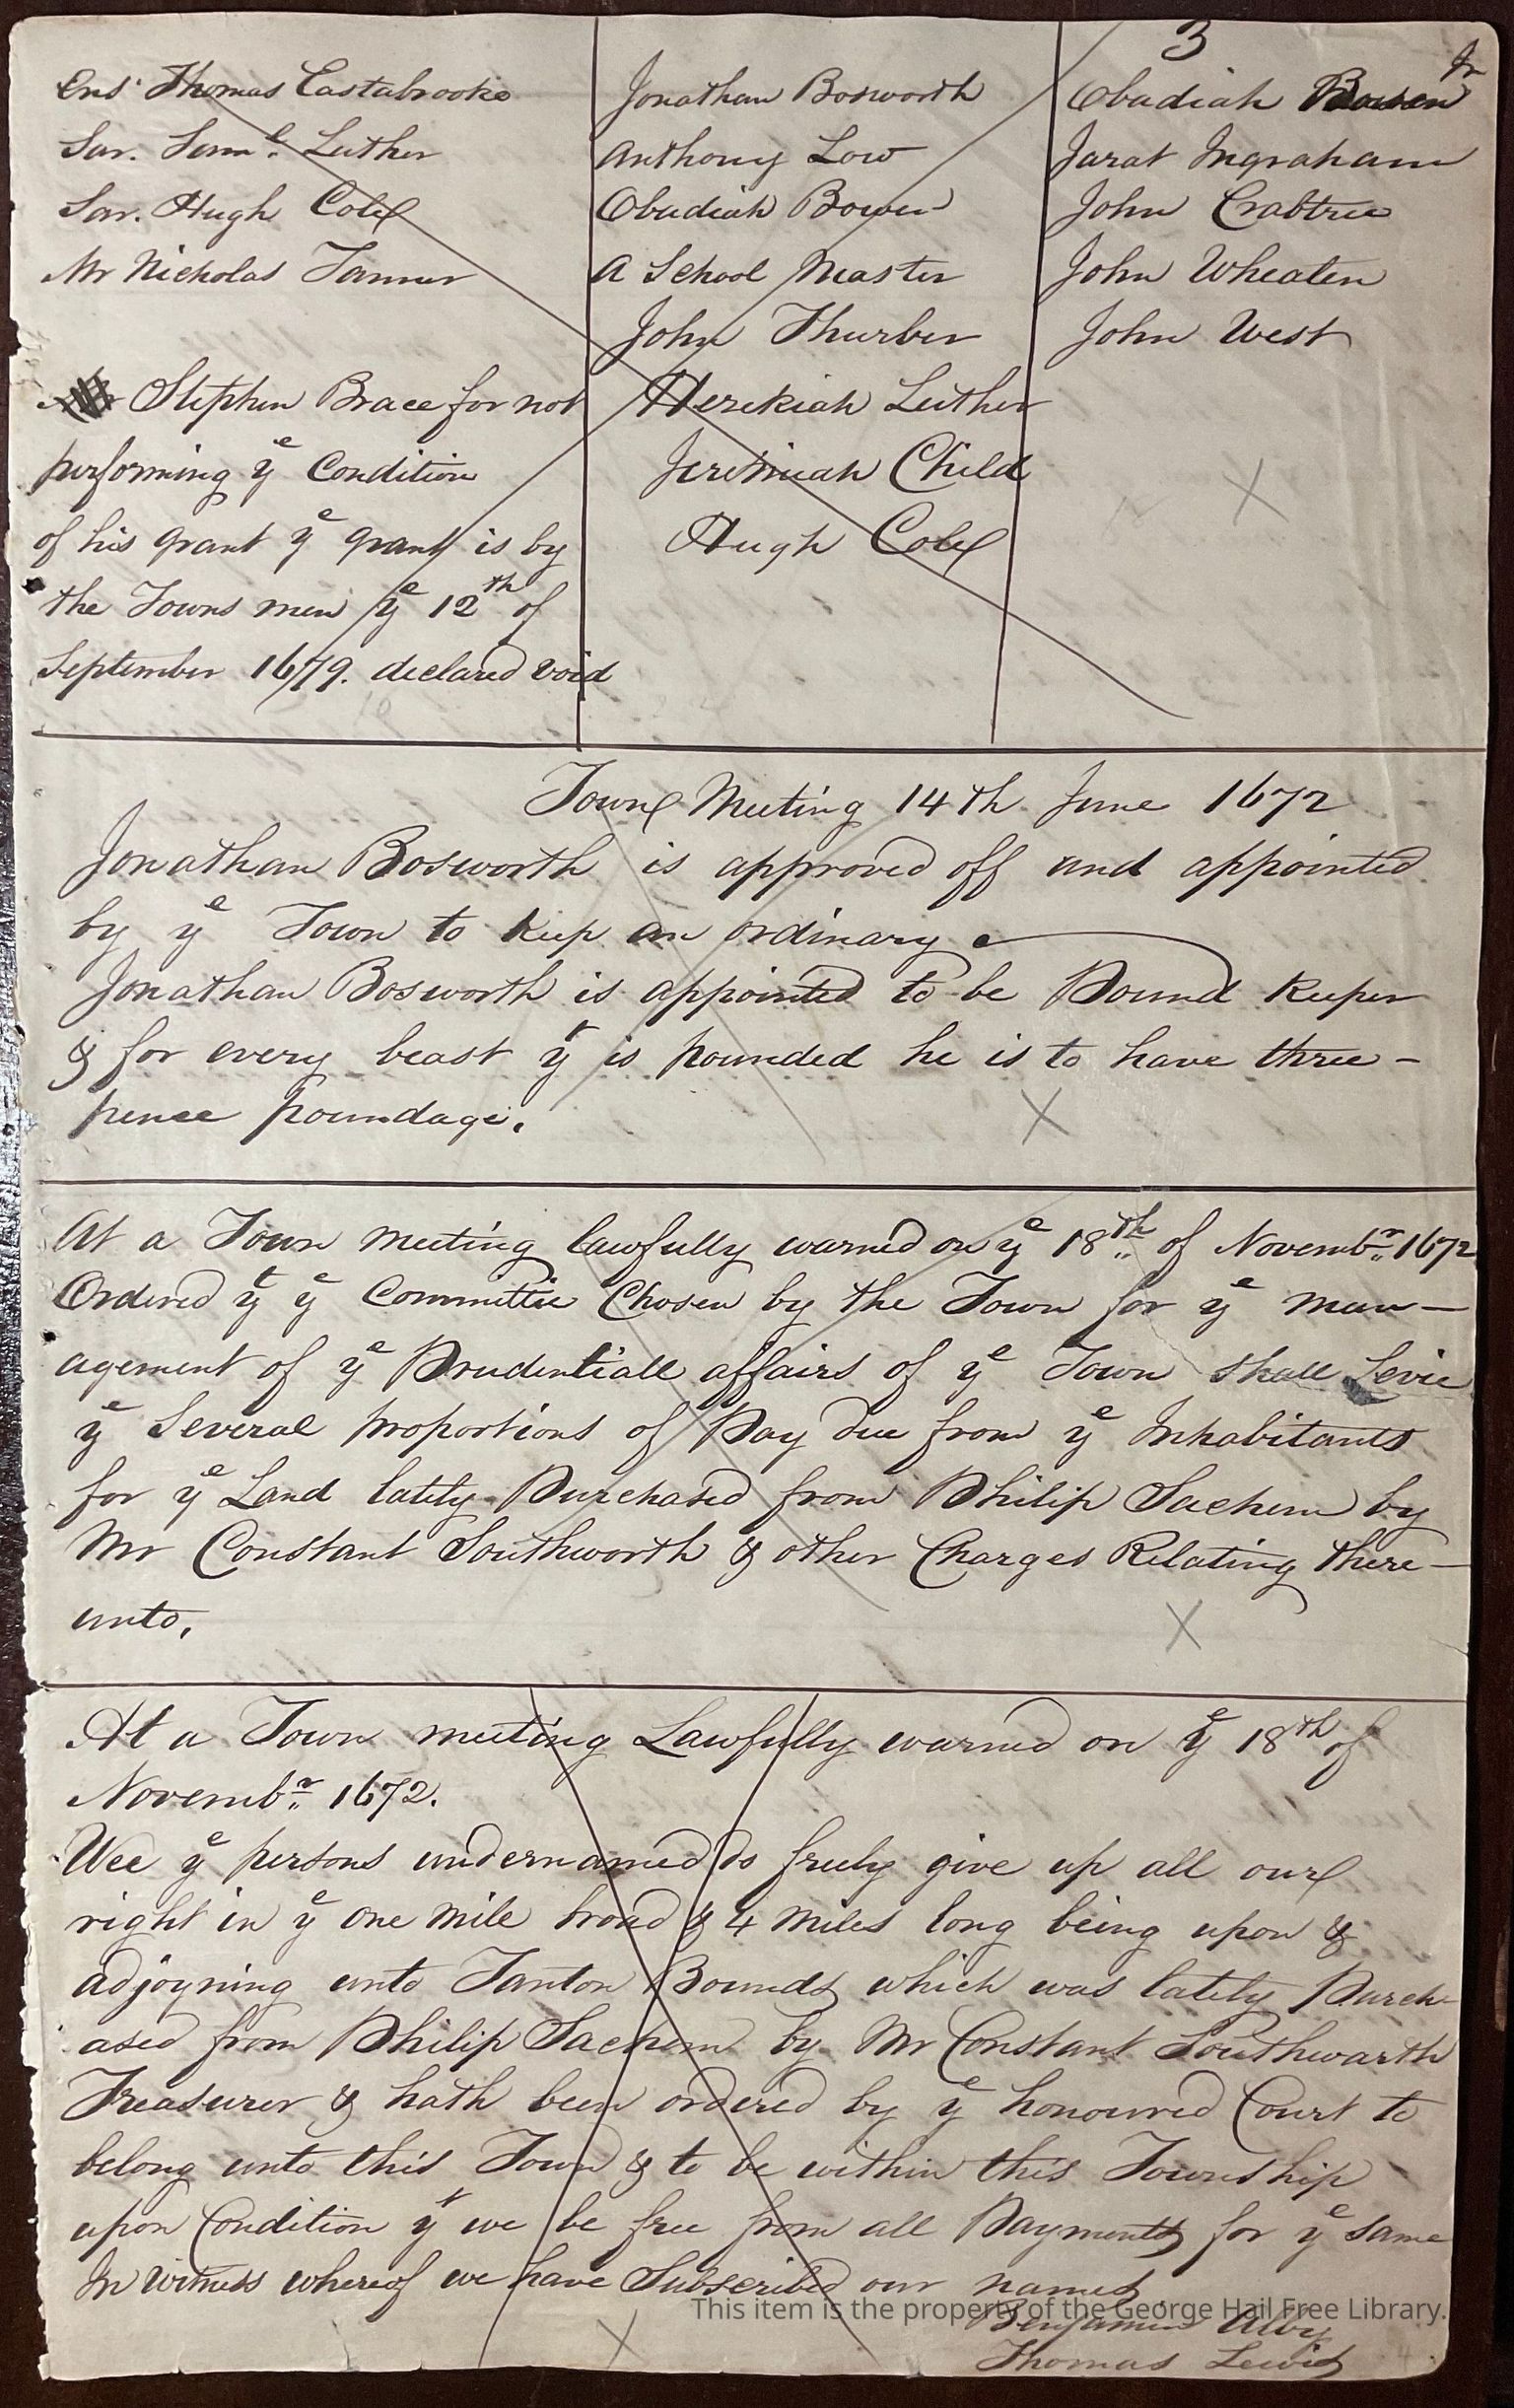 3
Ens. Thomas Eastabrooke
Sar. Saml. Luther
Sar. Hugh Cole
Mr Nicholas Tanner
Stephen Brace for not
performing ye Condition
of his grant ye grant is by
the Towns men ye 12th of
September 1679. declared void
Jonathan Bosworth
Anthony Low
Obadiah Bowen
A School Master
John Thurber
Hezekiah Luther
Jeremiah Child
Hugh Cole
Obadiah Bowen Jr
Jarat Ingraham
John Crabtree
John Wheaten
John West
Towne Meeting 14th June 1672
Jonathan Bosworth is approved off and appointed
by ye Town to keep an ordinary
Jonathan Bosworth is appointed to be Pound Keeper
& for every beast yt is pounded he is to have three-
pence poundage.
At a Town meeting lawfully warned on ye 18th of Novembr 1672
Ordered yt ye Committee Chosen by the Town for ye man-
agement of ye Prudentiall affairs of ye Town shall Levie
ye Several proportions of Pay due from ye Inhabitants
for ye Land lately Purchased from Philip Sachem by
Mr Constant Southworth & other Charges Relating there-
unto.
At a Town meeting Lawfully warned on ye 18th of
Novembr 1672.
Wee ye persons undernamed do freely give up all our
right in ye one mile broad & 4 miles long being upon &
adjoyning unto Tanton Bounds which was lately Purch-
ased from Philip Sachem by Mr Constant Southwarth
Treasurer & hath been ordered by ye honoured Court to
belong unto this Town & to be within this Township
upon Condition yt we be free from all Payments for ye same
In witness whereof we have Subscribed our names
This item is the property of the George Hail Free Library.
Benjamin Alby
Thomas Lewis